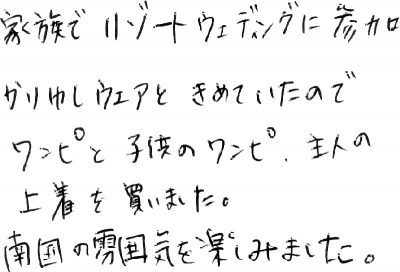 家族でリゾートウェディングに参加
かりゆしウェアときめていたので
ワンピと子供のワンピ、主人の
上着を買いました。
南国の雰囲気を楽しみました。